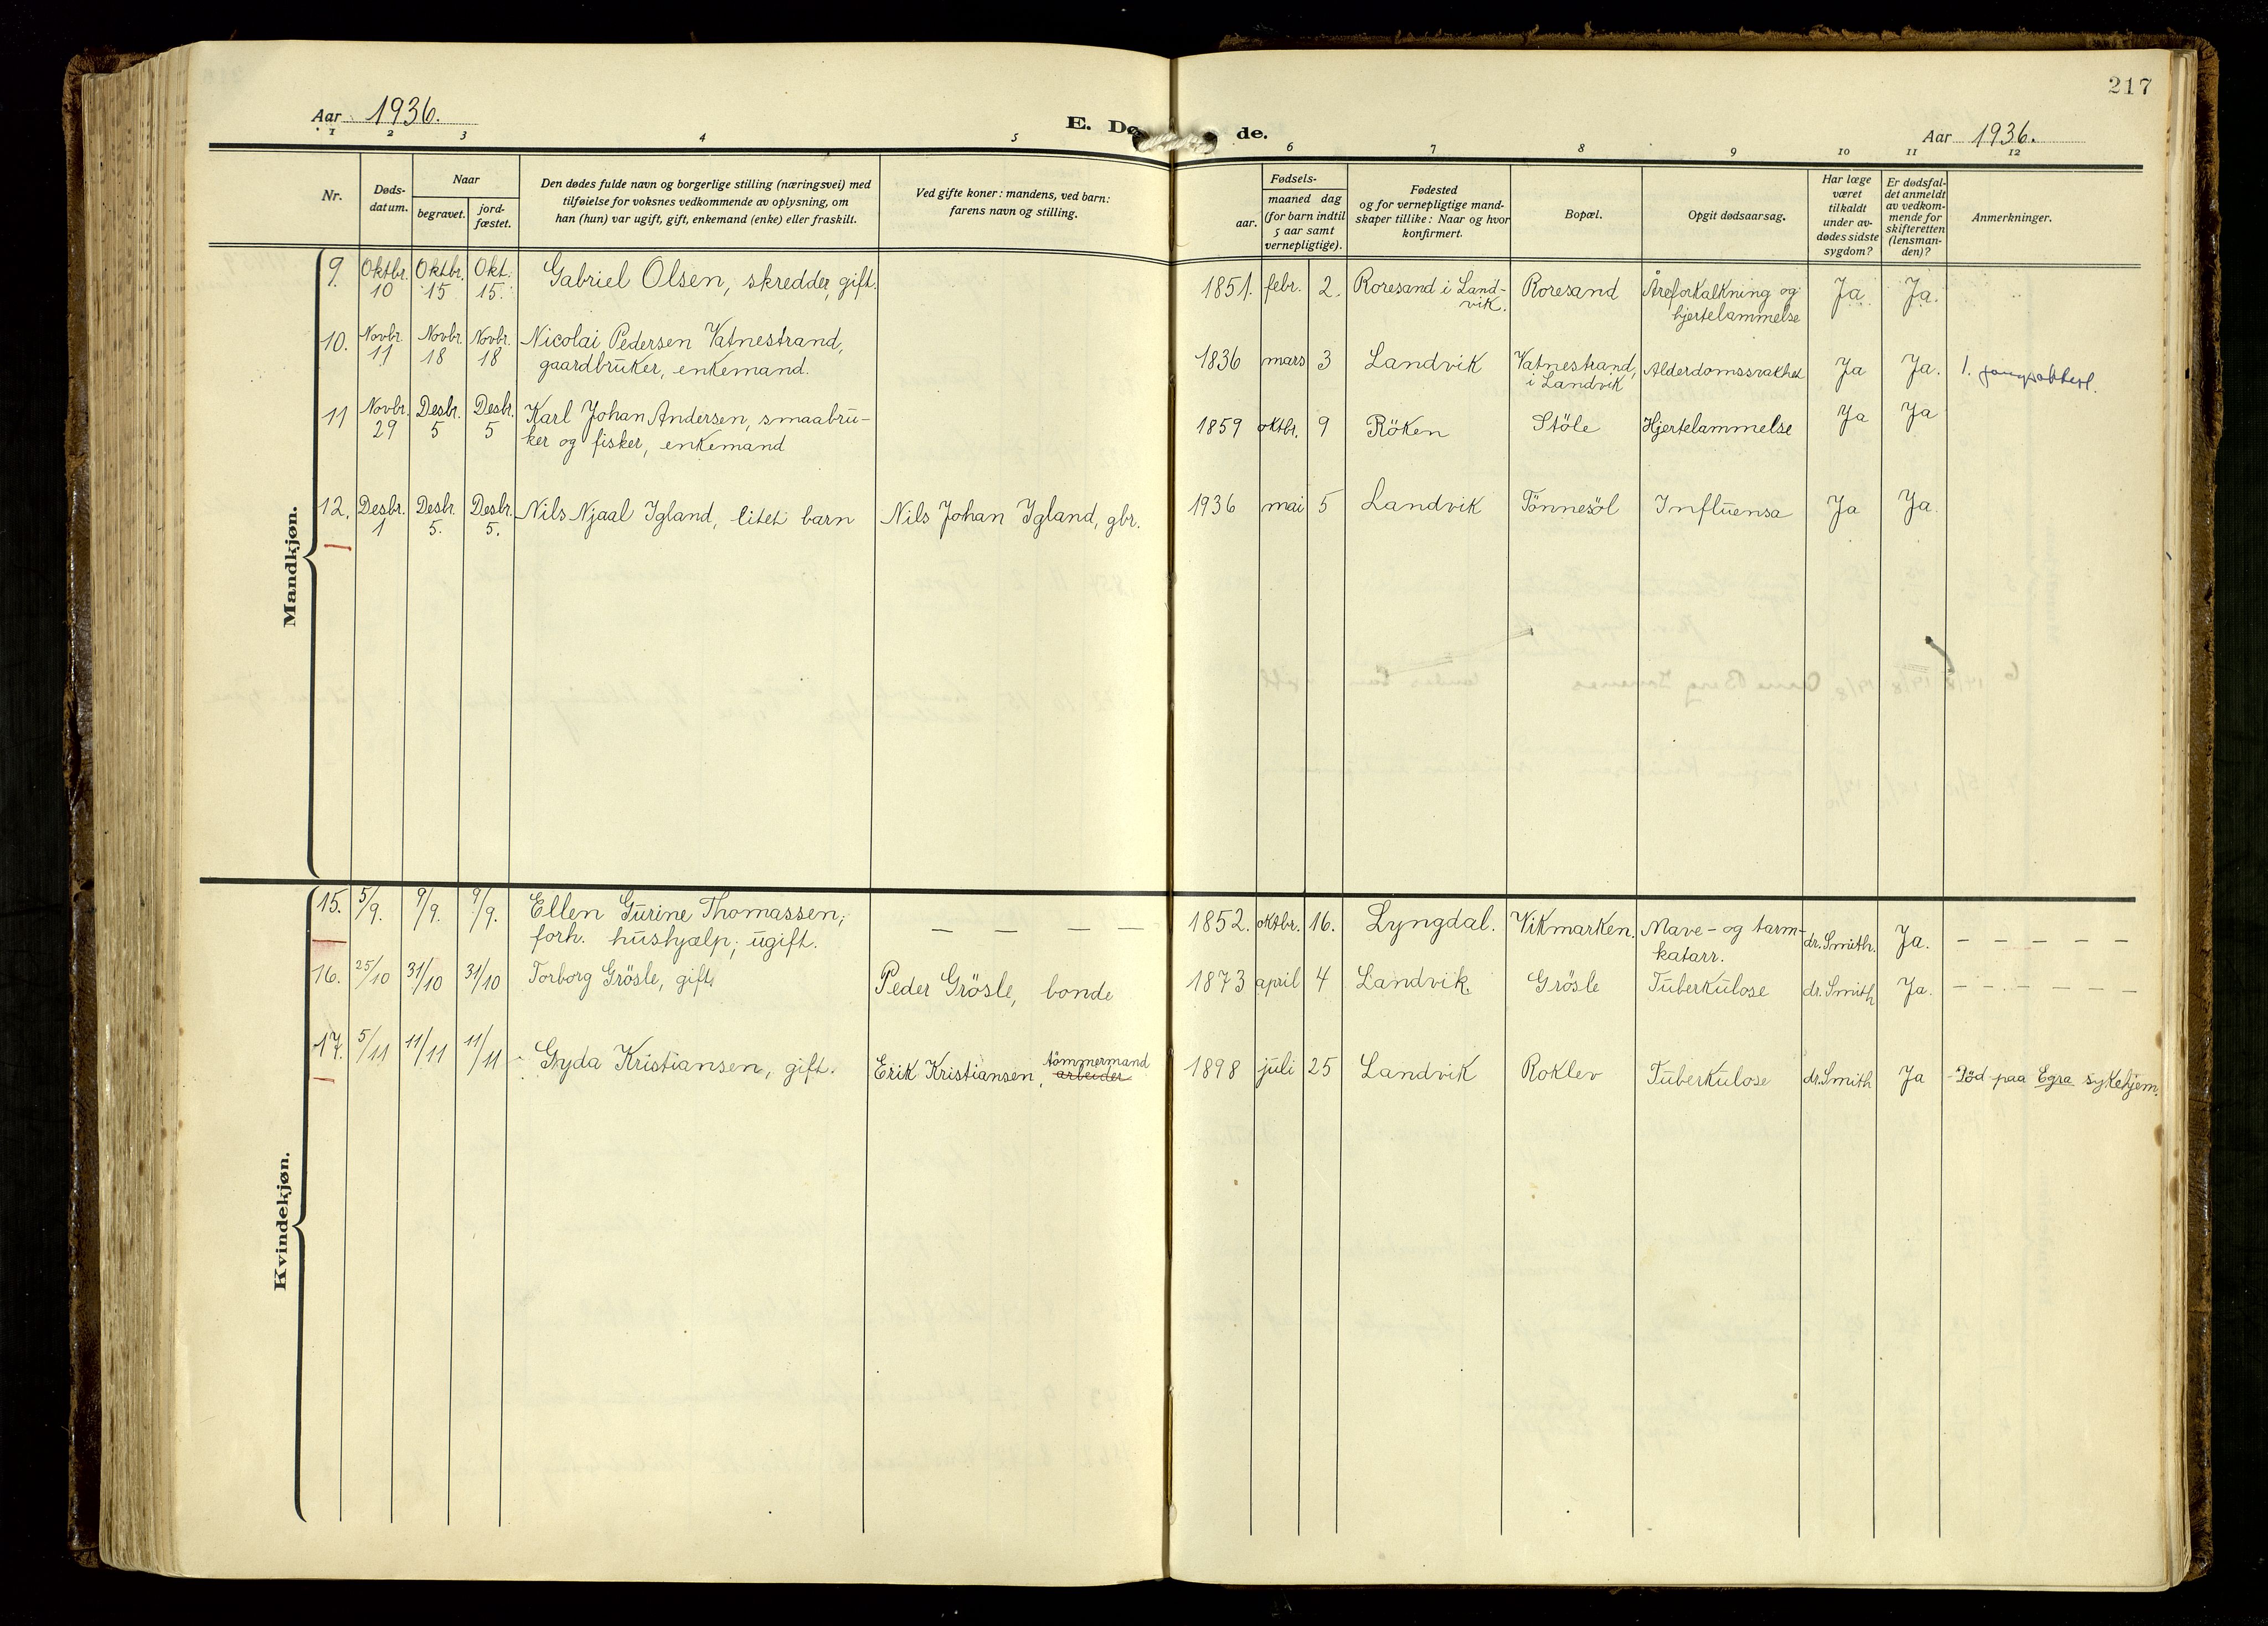 217
Aar 1936.
E. Dø de.
Aar 1936.
1 2 3 4 5 6 7 8 9 10 11 12
Nr.
Døds-
datum.
Naar
begravet.
jord-
fæstet.
Den dødes fulde navn og borgerlige stilling (næringsvei) med
tilføielse for voksnes vedkommende av oplysning, om
han (hun) var ugift, gift, enkemand (enke) eller fraskilt.
Ved gifte koner: mandens, ved barn:
farens navn og stilling.
Fødsels-
aar.
maaned dag
(for barn indtil
5 aar samt
vernepligtige).
Fødested
og for vernepligtige mand-
skaper tillike: Naar og hvor
konfirmert.
Bopæl.
Opgit dødsaarsag.
Har læge
været
tilkaldt
under av-
dødes sidste
sygdom?
Er dødsfal-
det anmeldt
av vedkom-
mende for
skifteretten
(lensman-
den)?
Anmerkninger.
Mandkjøn.
9. Oktbr. 10 Oktbr. 15 Okt. 15. Gabriel Olsen, skredder, gift. 1851. febr. 2. Roresand i Land-
vik. Roresand Åreforkalkning og
hjertelammelse Ja. Ja.
10. Novbr. 11 Novbr. 18 Novbr. 18 Nicolai Pedersen Vatnestrand,
gaardbruker, enkemand. 1836 mars 3 Landvik Vatnestrand,
i Landvik Alderdomssvakhet Ja Ja. 1.
11 Novbr. 29 Desbr. 5 Desbr. 5 Karl Johan Andersen, smaabru-
ker og fisker, enkemand 1859 oktbr. 9 Röken Stöle Hjertelammelse Ja Ja
12. Desbr. 1 Desbr. 5. Desbr. 5. Nils Njaal Igland, litet barn Nils Johan Igland, gbr. 1936 mai 5 Landvik Tönnesöl Influensa Ja Ja.
Kvindekjøn.
15. 5/9. 9/9. 9/9. Ellen Gurine Thomassen,
forh. hushjælp; ugift. — — — — 1852. oktbr. 16. Lyngdal. Vikmarken. Mave- og tarm-
katarr. dr. Smith. Ja. — — — — —
16. 25/10 31/10 31/10 Torborg Grösle, gift. Peder Grösle, bonde 1873 april 4 Landvik. Grösle Tuberkulose dr. Smith Ja. — — — — — —
17. 5/11 11/11 11/11 Gyda Kristiansen, gift. Erik Kristiansen, tömmermand
arbeider 1898 juli 25 Landvik Roklev Tuberkulose dr. Smith Ja - Död paa Egra sykehjem.